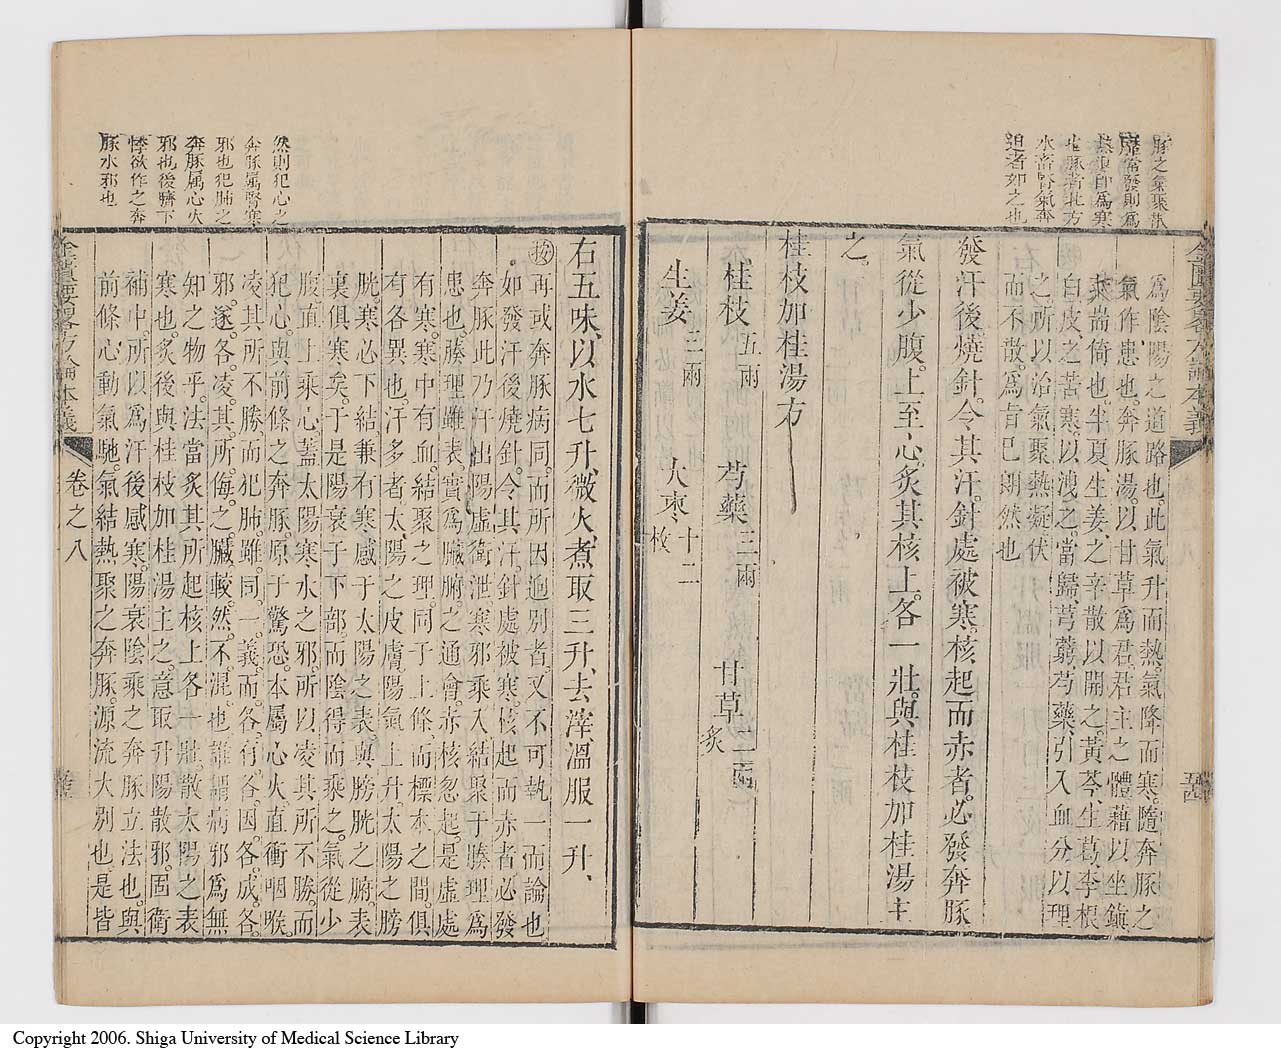 豚之氣聚散
靡常發則爲
然望卽爲寒
豚者北方
水畜腎氣奔
迫者如之也
金匱要略方論本義
五四
爲陰陽之道路也此氣升而熱氣降而寒隨奔豚之
氣作患也奔豚湯以甘草爲君君主之體藉以坐鎮
奕耑倚也半夏生姜之辛散以開之黃芩生葛李根
白皮之苦寒以洩之當歸芎藭芍藥引入血分以理
之所以治氣聚熱凝伏
而不散爲肯巳朗然也
發汗後燒針令其汗針處被寒核起而赤者必發奔豚
氣從少腹上至心炙其核上各一壯與桂枝加桂湯主
之
桂枝加桂湯方
桂枝五兩 芍藥三兩 甘草二兩炙
生姜三兩 大棗十二枚
然則犯心之
奔豚屬腎寒
邪也犯肺之
奔豚屬心火
邪也後臍下
悸欲作之奔
豚水邪也
右五味以水七升微火煮取三升去滓溫服一升
按再或奔豚病同而所因迥別者又不可執一而論也
如發汗後燒針令其汗針處被寒核起而赤者必發
奔豚此乃汗出陽虛衛泄寒邪乘入結聚于腠理爲
患也腠理雖表實爲臟腑之通會赤核忽起是虛處
有寒寒中有血結聚之理同于上條而標本之間俱
有各異也汗多者太陽之皮膚陽氣上升太陽之膀
胱寒必下結兼有寒感于太陽之表與膀胱之腑表
裏俱寒矣于是陽衰于下部而陰得而乘之氣從少
腹直上乘心蓋太陽寒水之邪所以凌其所不勝而
犯心與前條之奔豚原于驚恐本屬心火直衝咽喉
凌其所不勝而犯肺雖同一義而各有各因各成各
邪遂各凌其所侮之臟較然不混也誰謂病邪爲無
知之物乎法當炙其所起核上各一壯散太陽之表
寒也炙後與桂枝加桂湯主之意取升陽散邪固衛
補中所以爲汗後感寒陽衰陰乘之奔豚立法也與
前條心動氣馳氣結熱聚之奔豚源流大別也是皆
金匱要略方論本義
卷之八